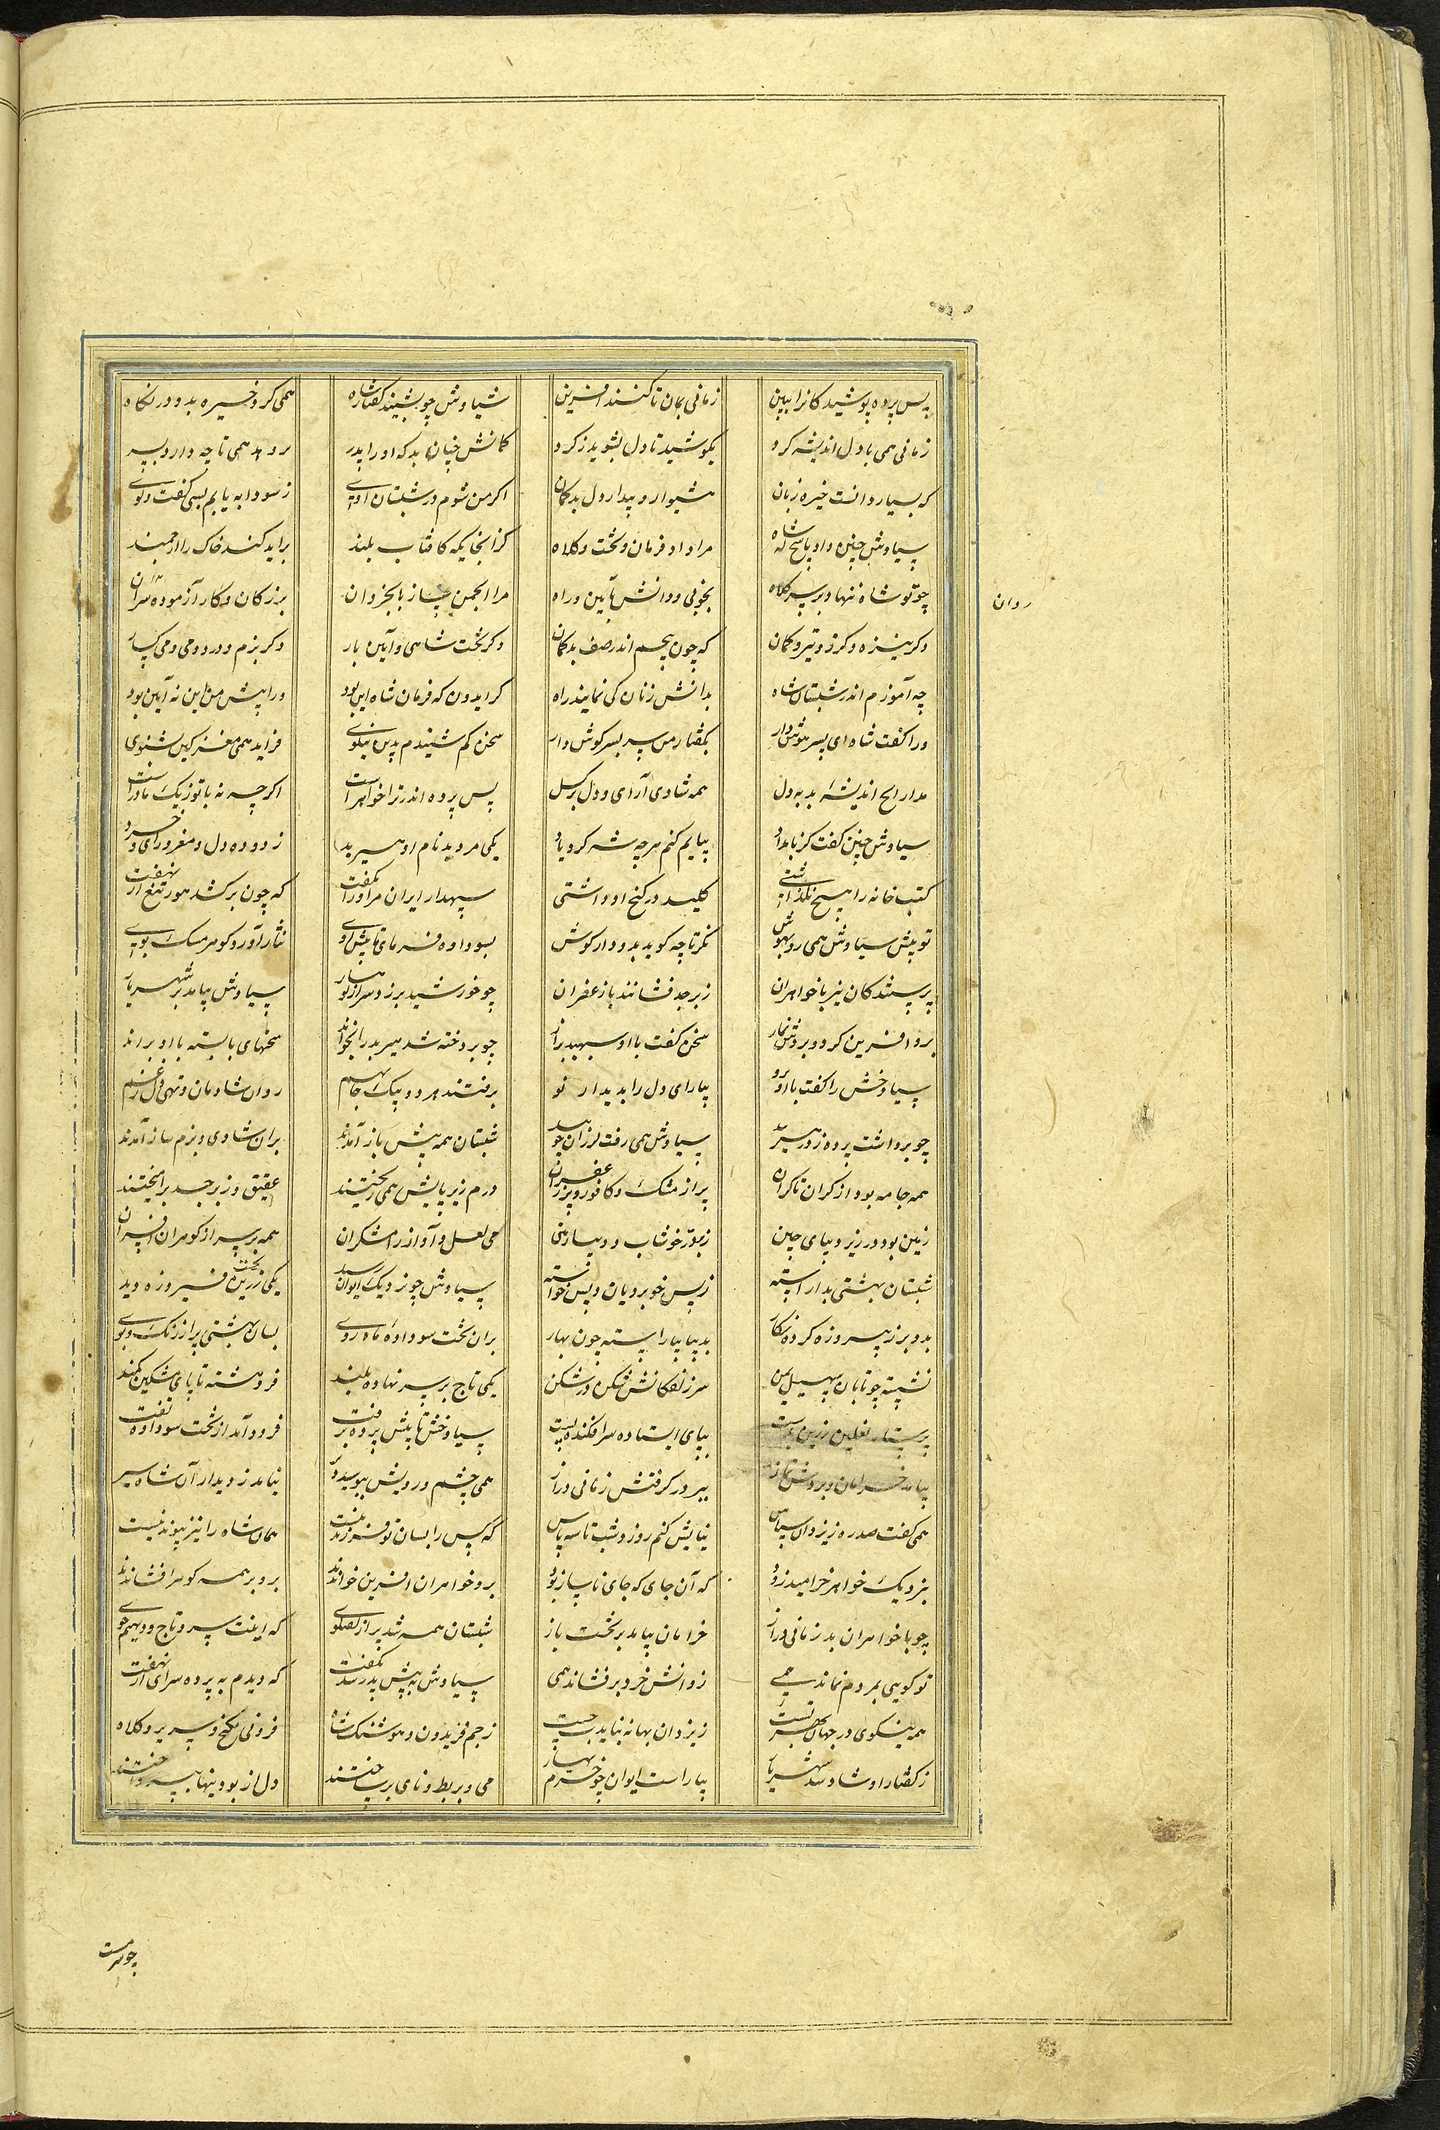 پس پرده پوشیدگانرا ببین زمانی بمان تا کنند آفرین سیاوش چو بشنید گفتار شاه همی کرد خیره بدو در نگاه
زمانی همی با دل اندیشه کرد بکوشید تا دل بشوید ز گرد گمانش چنان بد که او را پدر پژوهد همی تا چه دارد بسر
که بسیار دانست خیره زبان هشیوار و بیدار دل بدگمان اگر من شوم در شبستان اوی ز سودابه یابم بسی گفت و گوی
سیاوش چنین داد پاسخ که شاه مرا داد فرمان و تخت و کلاه کز انجایگه کافتاب بلند براید کند خاک را ارجمند
چو تو شاه ننهاد بر سر کلاه بخوبی و دانش بآیین و راه مرا انجمن ساز با بخردان بزرگان و کار آزموده سران
روان
دگر نیزه و گرز و تیر و کمان که چون پیچم اندر صف بدگمان دگر تخت شاهی و آیین بار دگر بزم و رود و می و می گسار
چه آموزم اندر شبستان شاه بدانش زنان کی نمایند راه گر ایدون که فرمان شاه این بود ورا پیش من این نه آیین بود
ورا گفت شاه ای پسر هوش دار بگفتار من سر بسر گوش دار سخن کم شنیدم بدین نیکوی فزاید همی مغز کین بشنوی
مدار ایچ اندیشهٔ بد به دل همه شادی آرای و دل برگسل پس پرده اندر ترا خواهر است اگرچه نه با تو ز یک مادر است
سیاوش چنین گفت کز بامداد بیایم کنم هر چه شه کرد یاد یکی مرد بد نام او هیربد زدوده دل و مغز و رای و خرد
که بتخانه را هیچ نگذاشتی کلید در گنج او داشتی سپهدار ایران مر او را بگفت که چون برکشد هور تیغ از نهفت
تو پیش سیاوش همی رو بهوش نگر تا چه گوید بدو دار گوش بسوداوه فرمای تا پیش اوی نثار آورد گوهر و مشک و بوی
پرستندگان نیز با خواهران زبرجد فشانند با زعفران چو خورشید برزد سر از کوهسار سیاوش بیامد بر شهریار
برو آفرین کرد و بردش نماز سخن گفت با او سپهبد براز چو پردخته شد هیربد را بخواند سخنهای بایسته با او براند
سیاوخش را گفت با او برو بیارای دل را بدیدار نو برفتند هر دو بیک جا بهم روان شادمان و تهی دل ز غم
چو برداشت پرده ز در هیربد سیاوش همی رفت لرزان چو بید شبستان همه پیش باز آمدند بران شادی و بزم ساز آمدند
همه جامه بود از کران تا کران پر از مشک و کافور و پر زعفران درم زیر پایش همی ریختند عقیق و زبرجد برامیختند
زمین بود در زیر دیبای چین ز در خوشاب و دیبا زمین می لعل و آواز رامشگران همه بر سر از گوهران افسران
شبستان بهشتی بد آراسته ز پس خوبرویان و پس خواسته سیاوش چو نزدیک ایوان رسید یکی تخت زرین فیروزه دید
بدو بر ز پیروزه کرده نگار بدیبا بیاراسته چون بهار بران تخت سوداوهٔ ماه روی بسان بهشتی پر از رنگ و بوی
نشسته چو تابان سهیل یمن سر زلفکانش شکن در شکن یکی تاج بر سر نهاده بلند فروهشته تا پای مشکین کمند
پرستار نعلین زرین بدست بپای ایستاده سرافکنده پست سیاوخش تا پیش پرده برفت فرود آمد از تخت سوداوه تفت
بیامد خرامان و بردش نماز ببر در گرفتش زمانی دراز همی چشم و رویش ببوسید دیر نیامد ز دیدار آن شاه سیر
همی گفت صد ره ز یزدان سپاس نیایش کنم روز و شب تا سه پاس که کس را بسان تو فرزند نیست همان شاه را نیز پیوند نیست
بنزدیک خواهر خرامید زود که آن جای که جای ناساز بود برو خواهران آفرین خواندند برو بر همه گوهر افشاندند
چو با خواهران بد زمانی دراز خرامان بیامد بر تخت باز شبستان همه شد پر از گفتگوی که اینت سر و تاج و دیهیم جوی
تو گویی بمردم نماند همی روانش خرد برفشاند همی سیاوش به پیش پدر شد بگفت که دیدم به پرده سرای از نهفت
همه نیکوی در جهان بهر تست ز یزدان بهانه نباید جست ز جم و فریدون و هوشنگ شاه فزونی بگنج و سریر و کلاه
ز گفتار او شاد شد شهریار بیاراست ایوان چو خرم بهار می و بربط و نای برساختند دل از بودنیها بپرداختند
چو سرمست